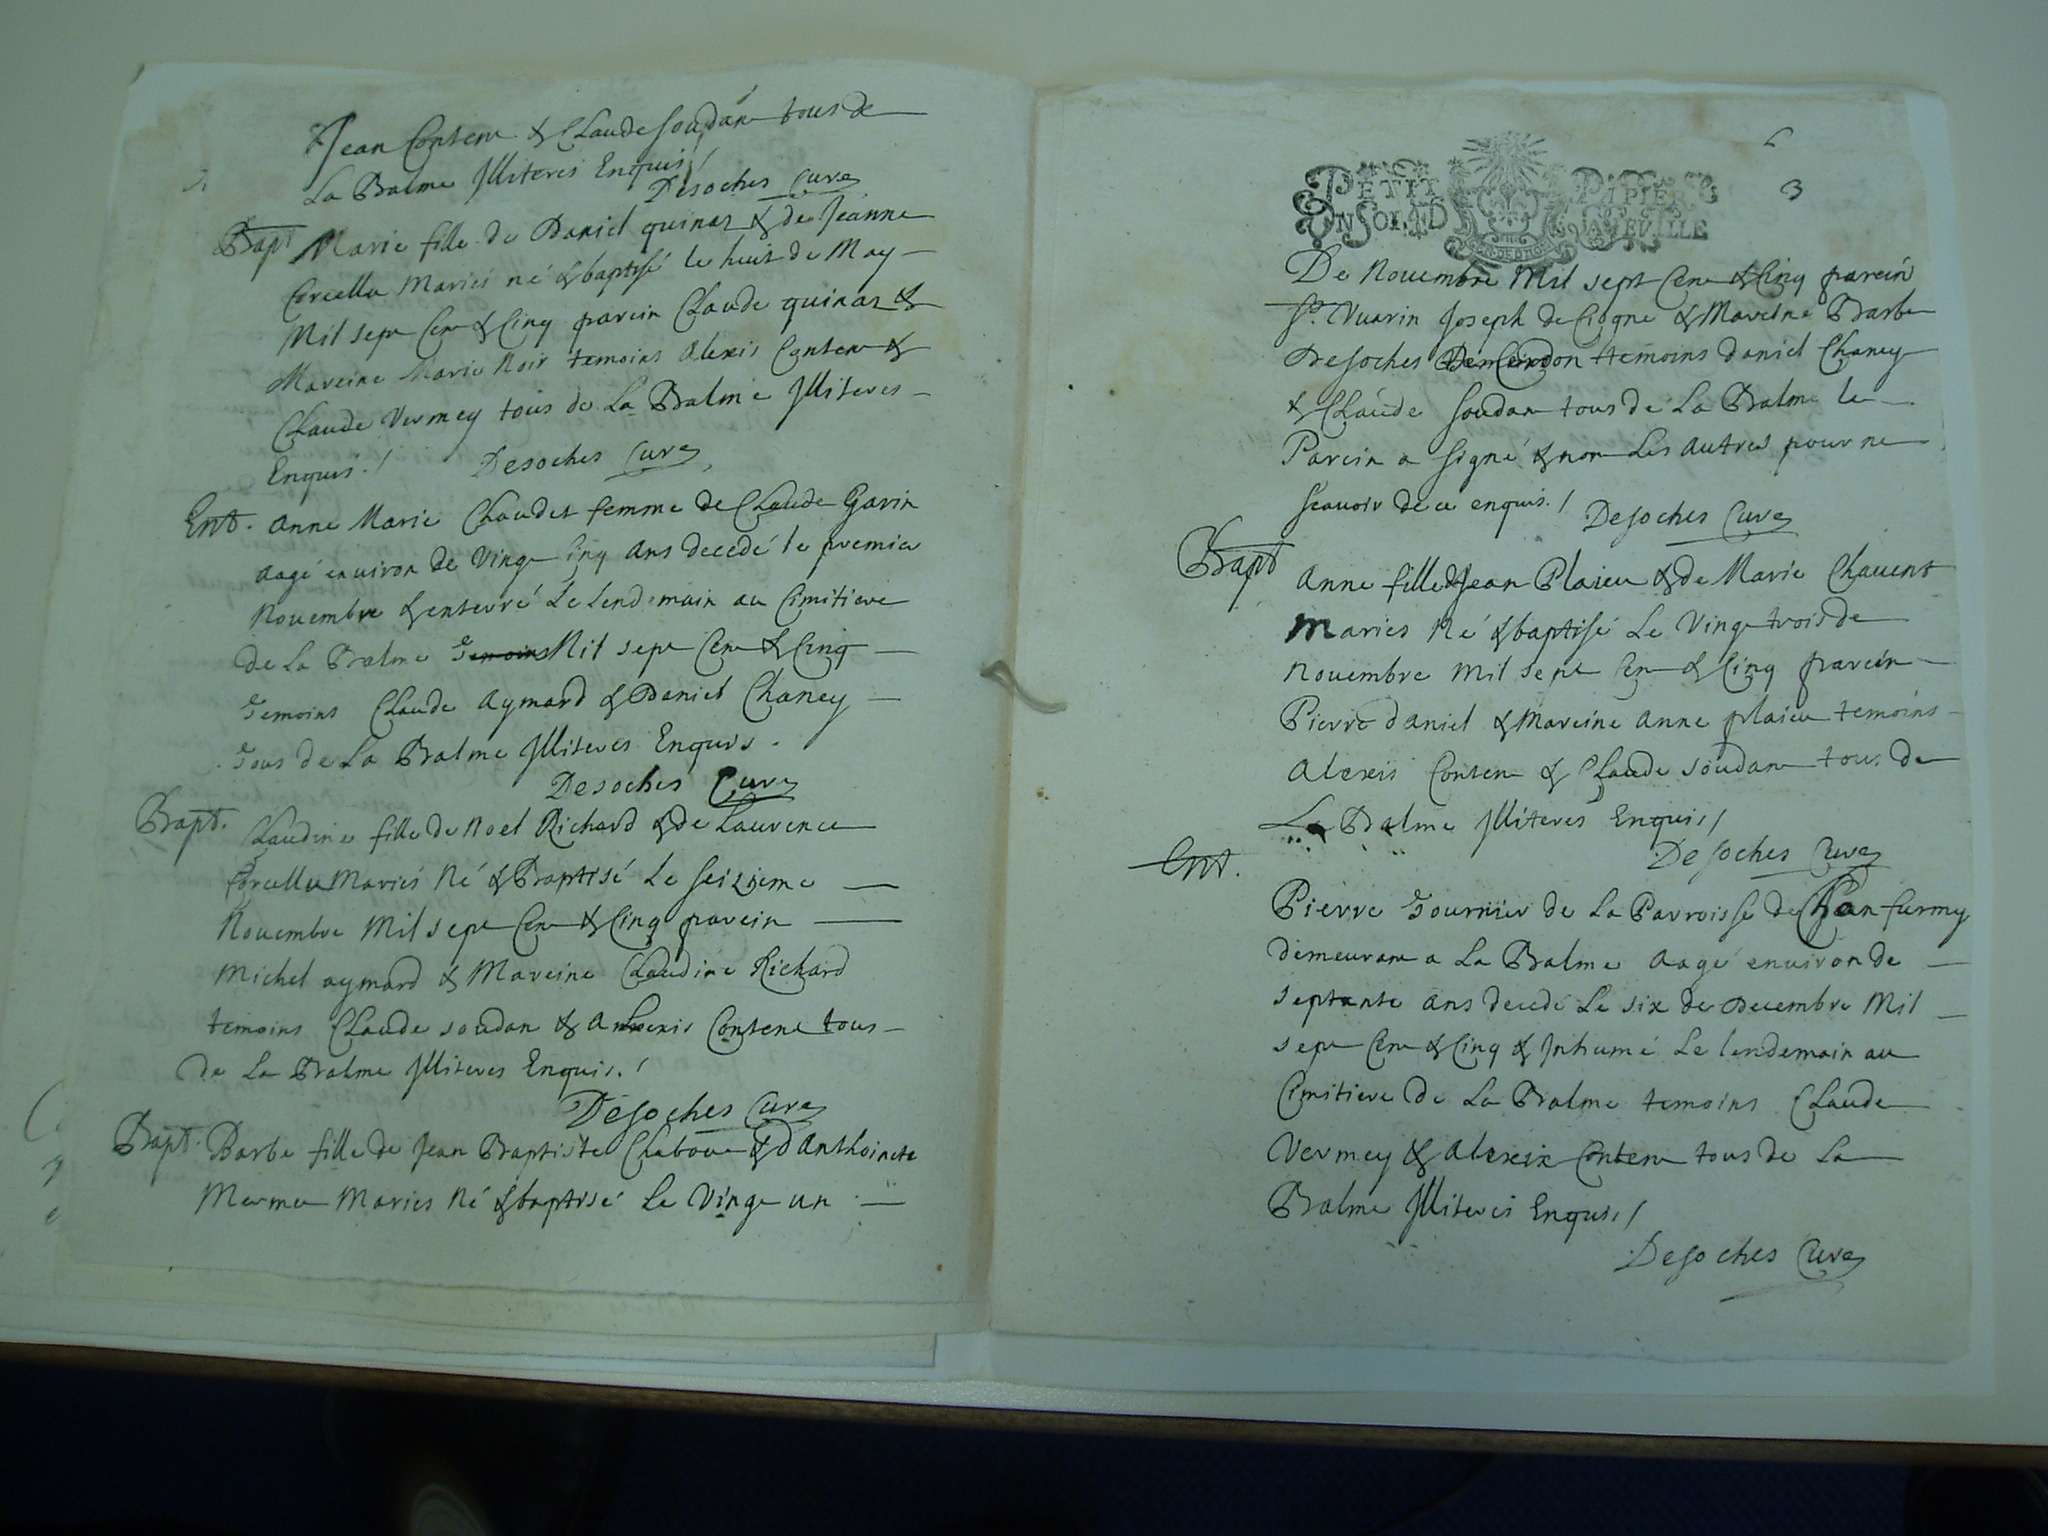 Jean Conten & Claude Soudan tous de
La Balme Illiteres Enquis /
Desoches Curé
Bapt Marie fille de Daniel quinar & de Jeanne
Corcellu Mariés né & baptisé le huit de May
Mil sept Cen & Cinq parein Claude quinar &
Mareine Marie Noir temoins Alexis Conten &
Claude Vermey tous de La Balme Illiteres
Enquis ./ Desoches Curé
Ent. Anne Marie Chaudet femme de Claude Gavin
aagé environ de Vingt Cinq Ans decedé le premier
Nouembre & enterré Le Lendemain au Cimitiere
de La Balme Temoins Mil sept Cen & Cinq
Temoins Claude Aymard & Daniel Chaney
Tous de La Balme Illiteres Enquis.
Desoches Curé
Bapt. Claudine fille de Noel Richard & de Laurence
Corcellu Mariés Né & Baptisé Le seizieme
Nouembre Mil sept Cen & Cinq parein
Michel aymard & Mareine Claudine Richard
temoins Claude soudan & Alexis Conten tous
de La Balme Illiteres Enquis. /
Desoches Curé
Bapt. Barbe fille de Jean Baptiste & d'Anthoinete
Mermer Mariés Né & baptisé Le Vingt un
6
3
PETIT PAPIER
UN SOL 4 D LA FEVILLE
De Nouembre Mil sept Cen & Cinq parein
Sr. Vuarin Joseph de Cogne & Mareine Barbe
Desoches temoins daniel Chaney
& Claude Soudan tous de La Balme le
Parein a signé & non Les Autres pour ne
Scauoir de ce enquis. /
Desoches Curé
Bapt Anne fille de Jean Plaieu & de Marie Chauent
Mariés Né & baptisé Le Vingt trois de
Nouembre Mil sept Cen & Cinq parein
Pierre daniel & Mareine Anne plaieu temoins
Alexis Conten & Claude soudan tous de
La Balme Illiteres Enquis /
Desoches Curé
Ent.
Pierre Tournier de La Parroisse de Chanfurmy
demeuran a La Balme Aagé environ de
septante ans decedé Le six de Decembre Mil
sept Cen & Cinq & Inhumé Le lendemain au
Cimitiere de La Balme temoins Claude
Vermey & Alexis Conten tous de La
Balme Illiteres Enquis /
Desoches Curé